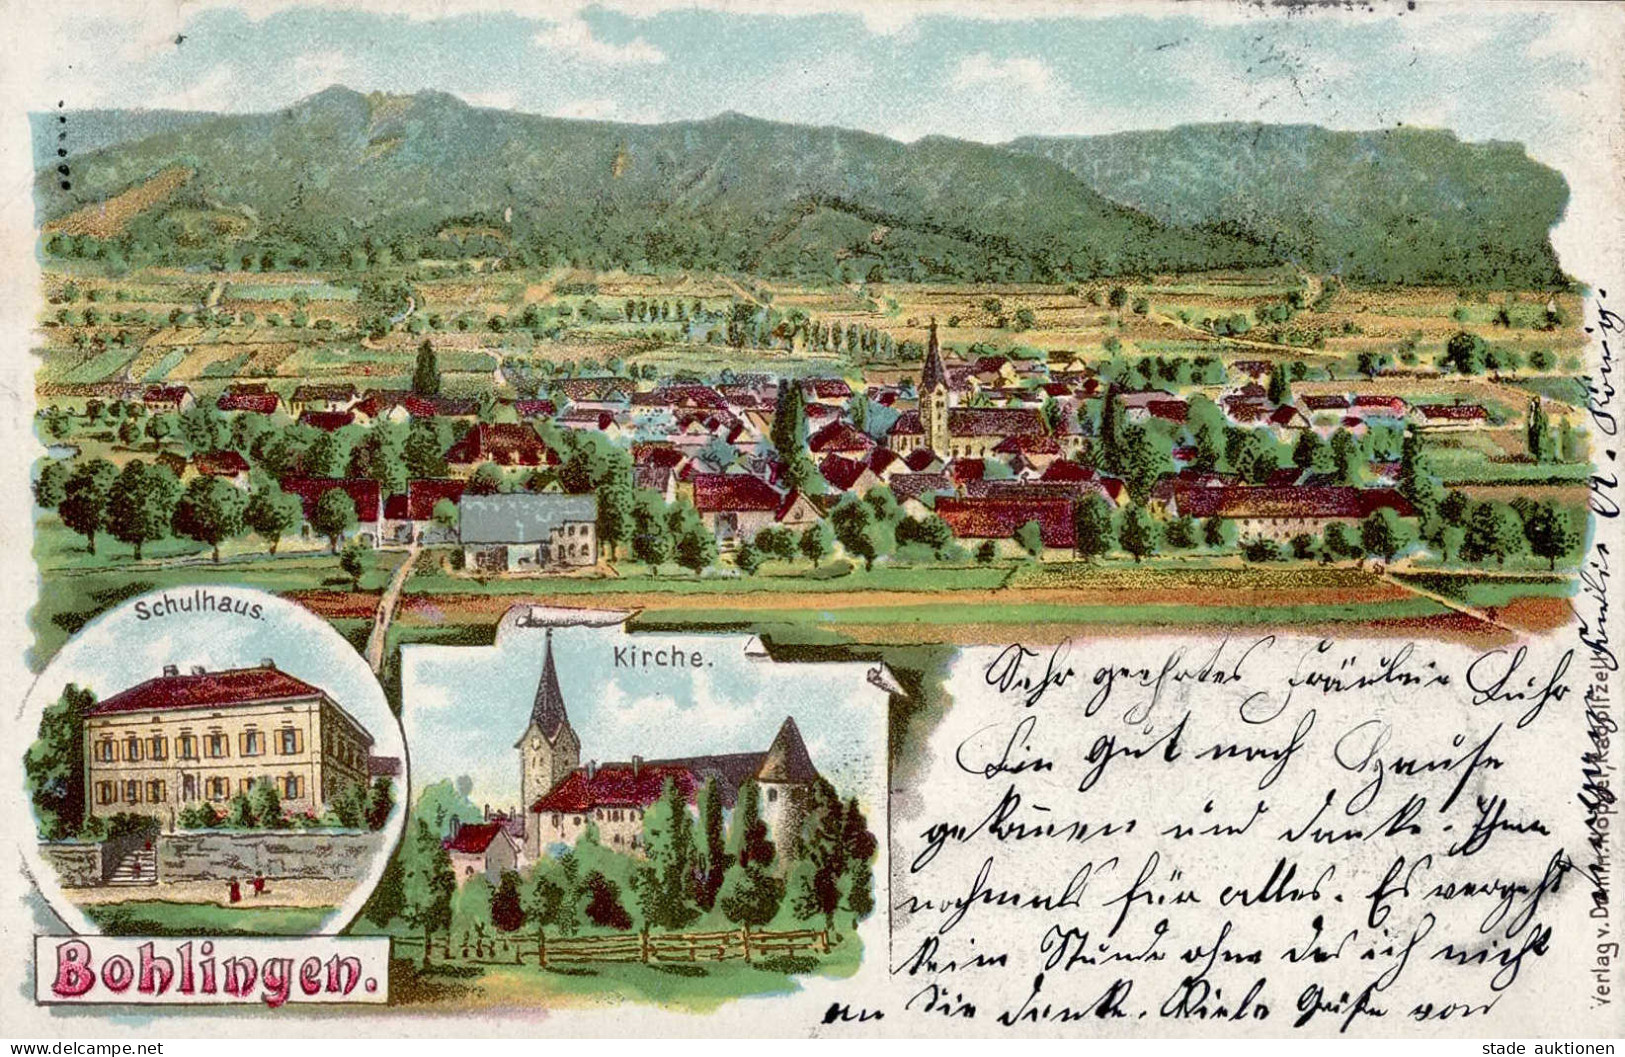 Schulhaus.
Kirche.
Bohlingen.
Sehr geehrtes Fräulein Luhr
Bin gut nach Hause
gekommen und danke Ihnen
nochmals für alles. Es vergeht
keine Stunde ohne das ich nicht
an Sie denke. Viele Grüße von
König.
Verlag v. Radolfzell
www.delcampe.net
stade auktionen